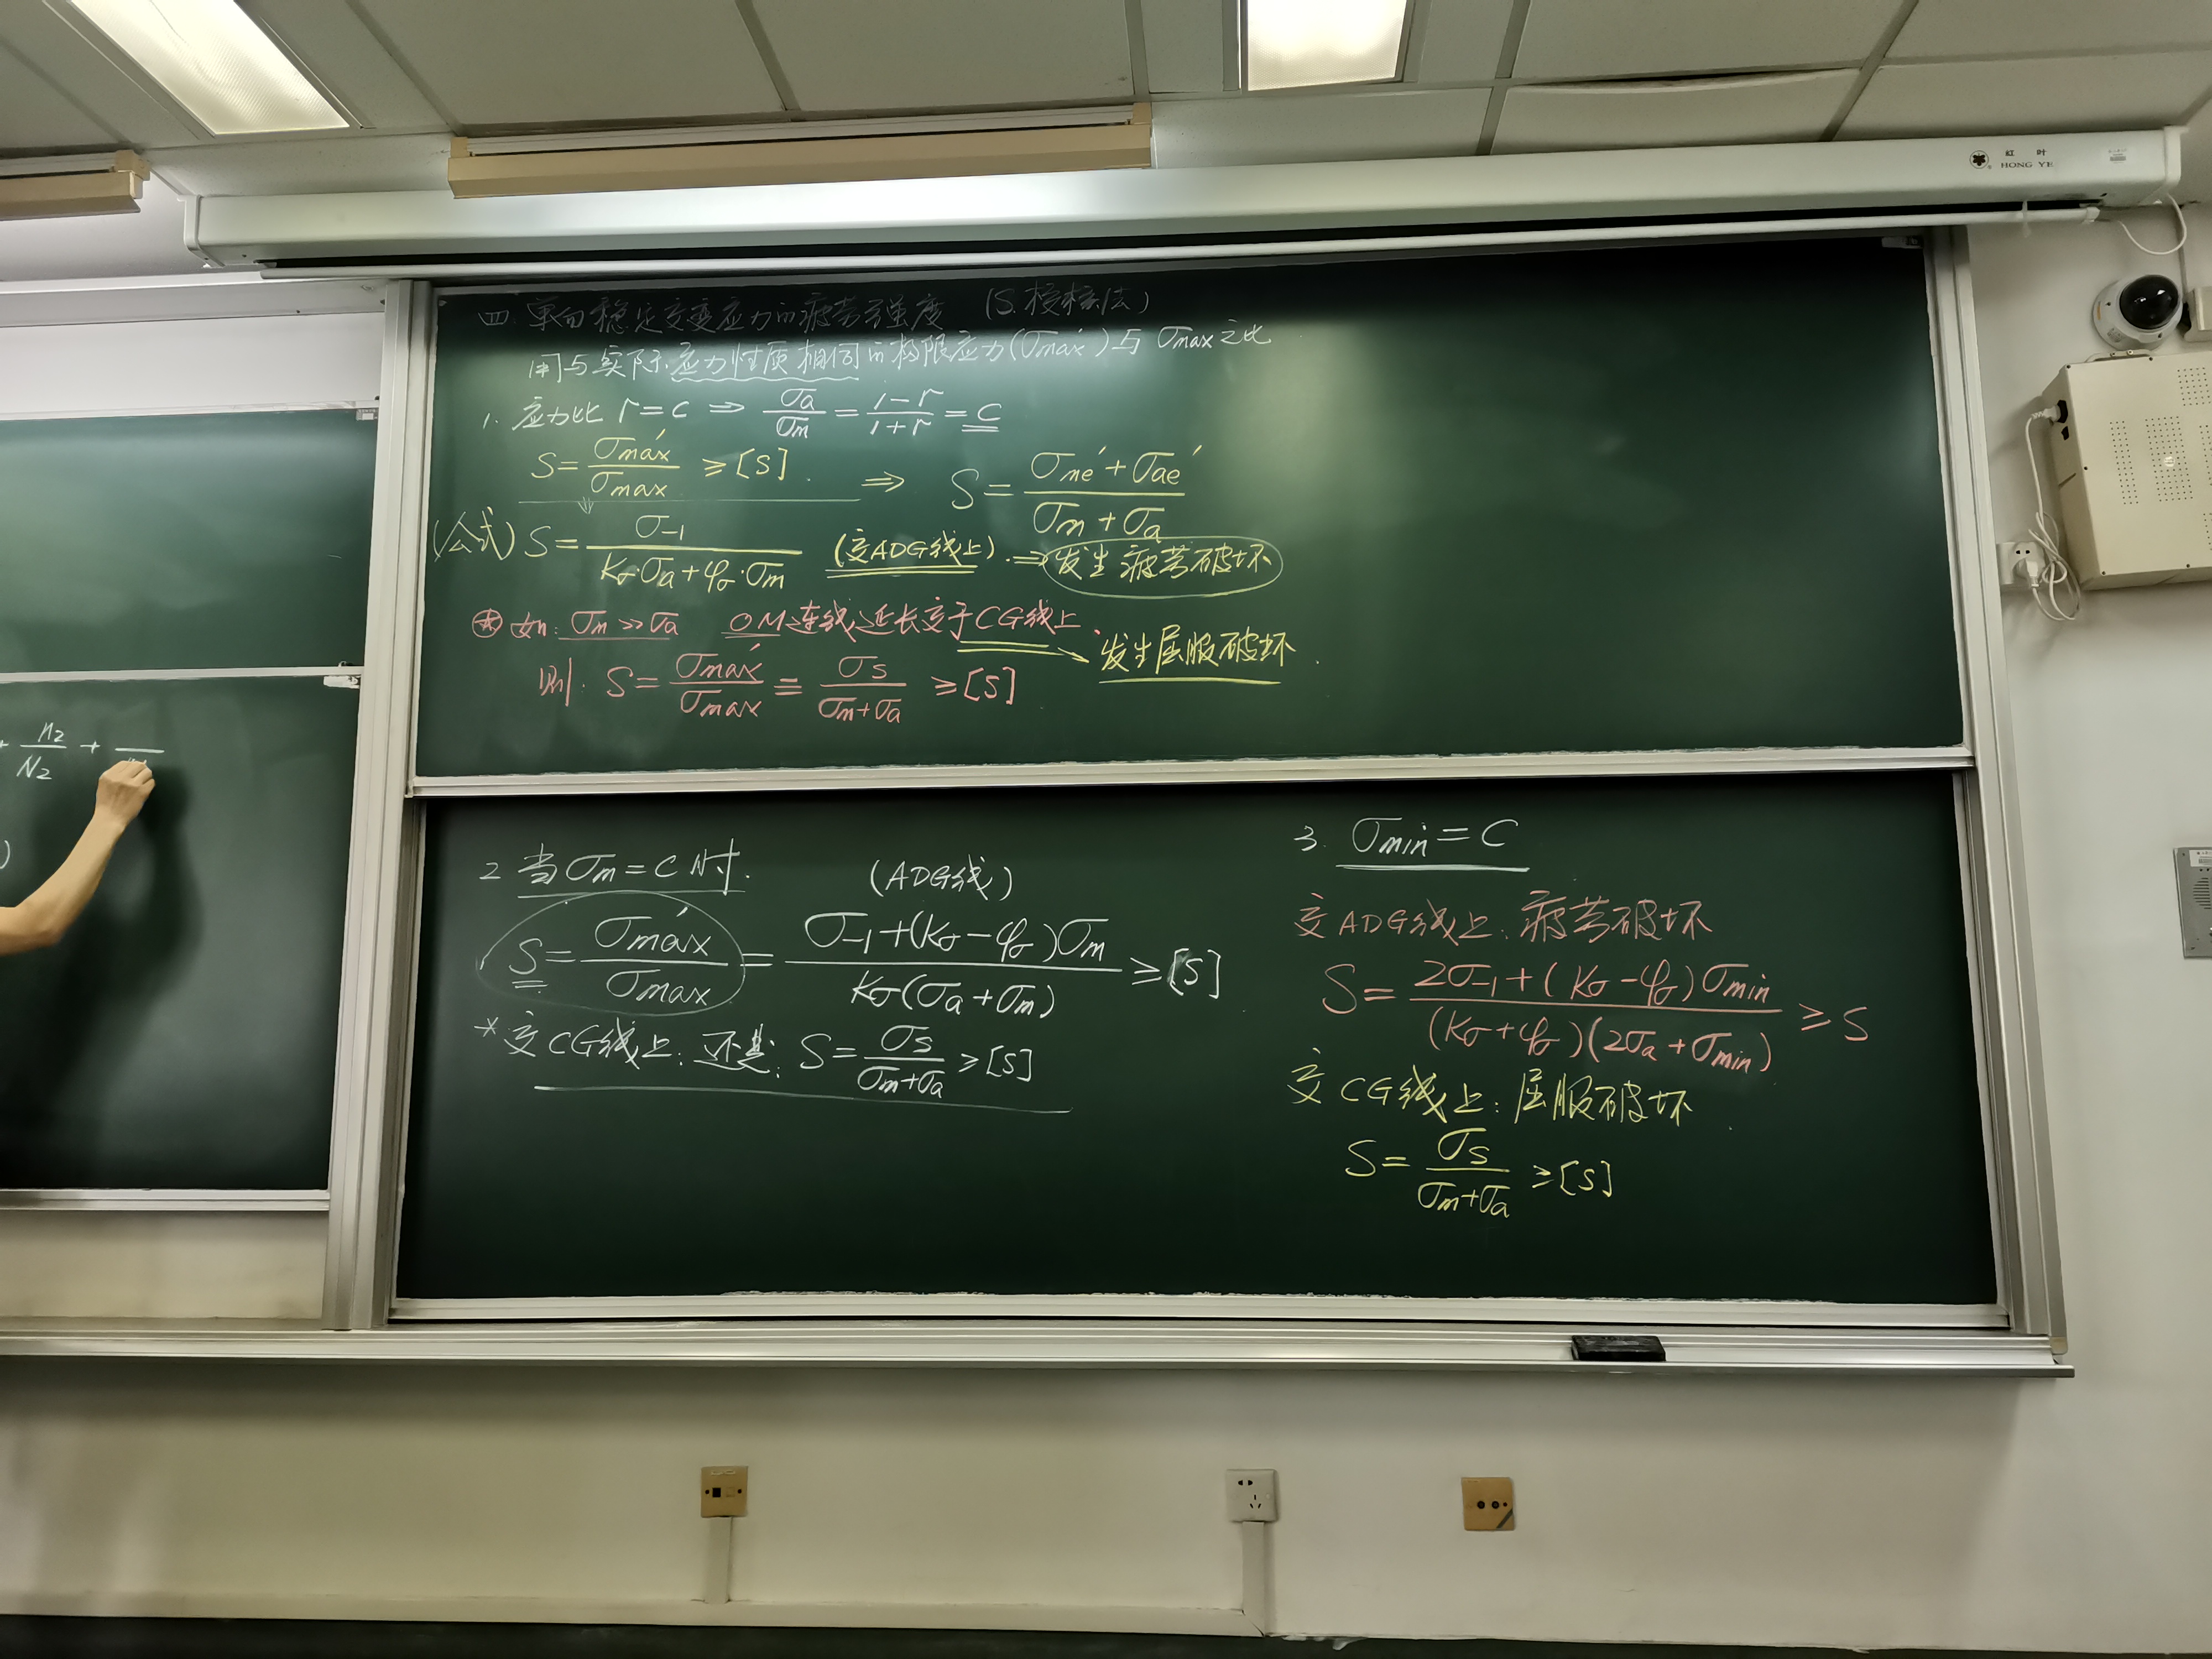 红 叶
HONG YE
四. 单向稳定交变应力的疲劳强度 (S.校核法)
用与实际应力性质相同的极限应力(σmax′)与 σmax之比
1. 应力比 r=c ⇒ σa/σm = (1-r)/(1+r) = c
S = σmax′/σmax ≥ [S]. ⇒ S = (σme′+σae′)/(σm+σa)
(公式) S = σ-1/(Kσ·σa+φσ·σm) (交ADG线上). ⇒ 发生疲劳破坏
如: σm >> σa OM连线延长交于CG线上. → 发生屈服破坏.
则: S = σmax′/σmax = σs/(σm+σa) ≥ [S]
+ n2/N2 +
)
2 当σm=C时. (ADG线)
S = σmax′/σmax = (σ-1+(Kσ-φσ)σm)/(Kσ(σa+σm)) ≥ [S]
* 交CG线上: 还是: S = σs/(σm+σa) ≥ [S]
3. σmin = C
交ADG线上: 疲劳破坏
S = (2σ-1+(Kσ-φσ)σmin)/((Kσ+φσ)(2σa+σmin)) ≥ S
交CG线上: 屈服破坏.
S = σs/(σm+σa) ≥ [S]